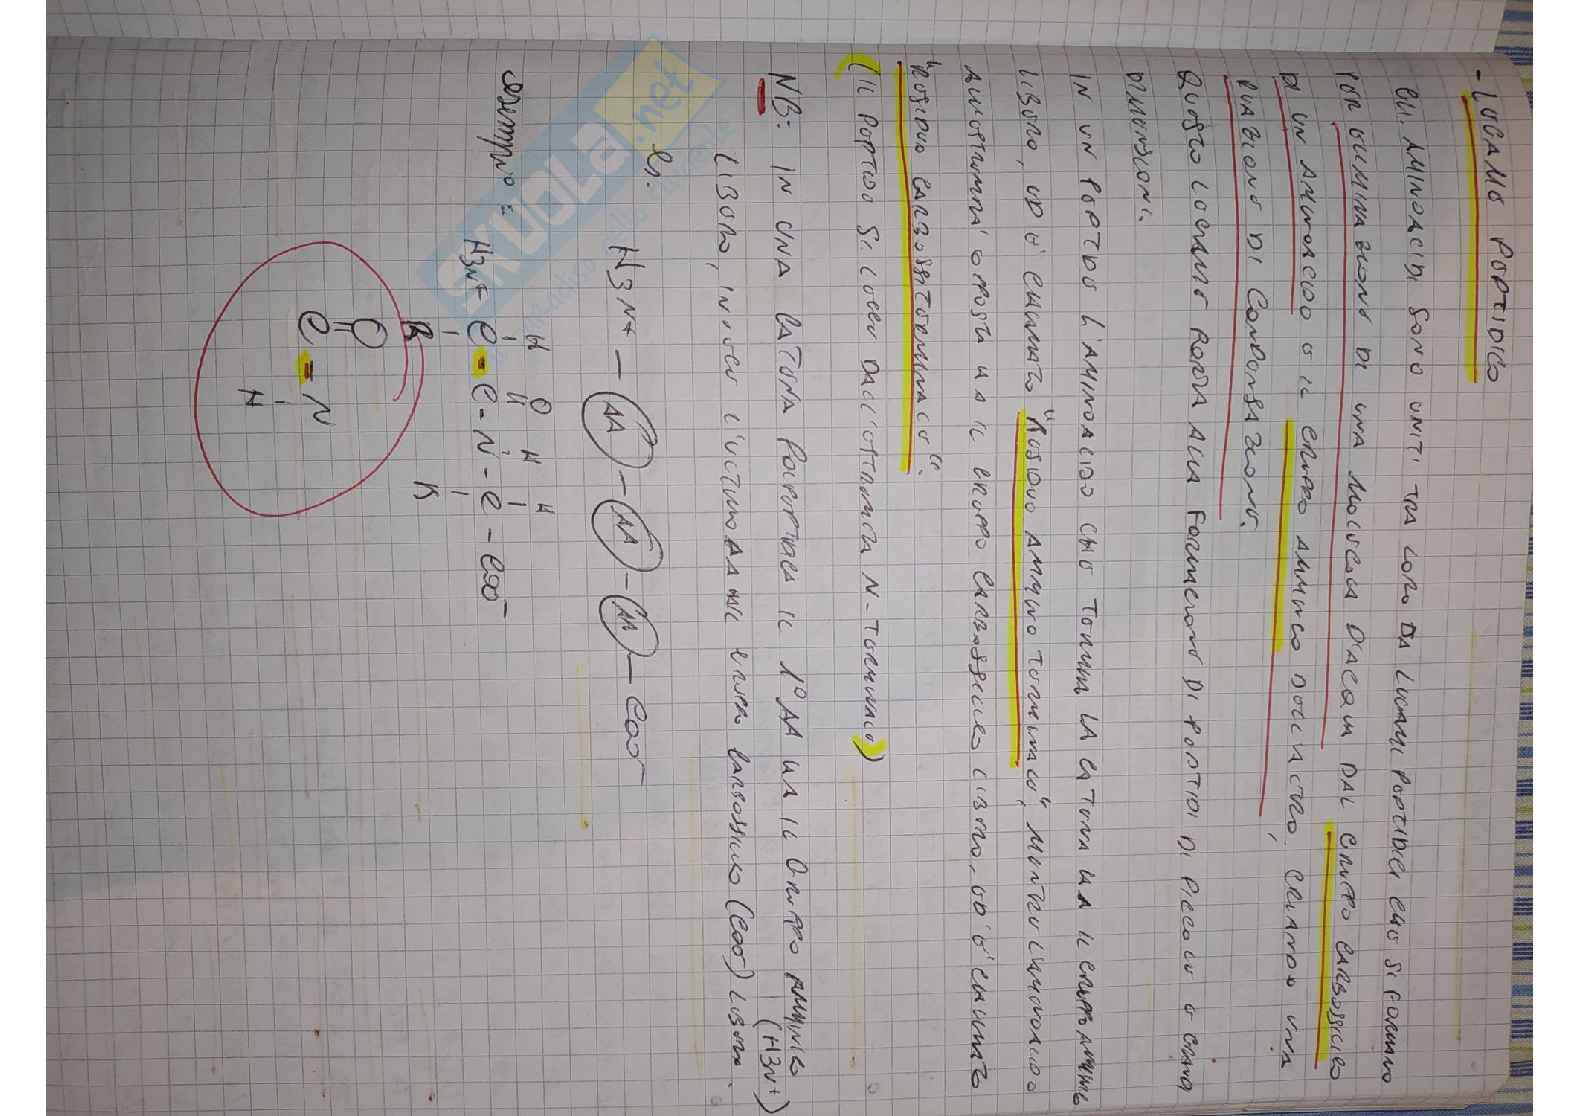 - LEGAME PEPTIDICO
GLI AMINOACIDI SONO UNITI TRA LORO DA LEGAMI PEPTIDICI CHE SI FORMANO
PER ELIMINAZIONE DI UNA MOLECOLA D'ACQUA DAL GRUPPO CARBOSSILICO
DI UN AMINOACIDO E IL GRUPPO AMMINICO DELL'ALTRO, CREANDO UNA
REAZIONE DI CONDENSAZIONE.
QUESTO LEGAME PORTA ALLA FORMAZIONE DI PEPTIDI DI PICCOLE O GRANDI
DIMENSIONI.
IN UN PEPTIDE L'AMINOACIDO CHE TERMINA LA CATENA HA IL GRUPPO AMMINO
LIBERO, ED È CHIAMATO "RESIDUO AMMINO TERMINALE", MENTRE L'AMINOACIDO
ALL'ESTREMITÀ OPPOSTA HA IL GRUPPO CARBOSSILICO LIBERO, ED È CHIAMATO
"RESIDUO CARBOSSITERMINALE".
(IL PEPTIDE SI LEGGE DALL'ESTREMITÀ N-TERMINALE)
NB: IN UNA CATENA POLIPEPTIDICA IL 1° AA HA IL GRUPPO AMMINICO
(H3N+)
LIBERO, INVECE L'ULTIMO AA HA IL GRUPPO CARBOSSILICO (COO-) LIBERO.
es. H3N+ - AA - AA - AA - COO-
SKUOLA.net
H O H H
esempio: H3N+ C - C - N - C - COO-
R R
O
C = N
H